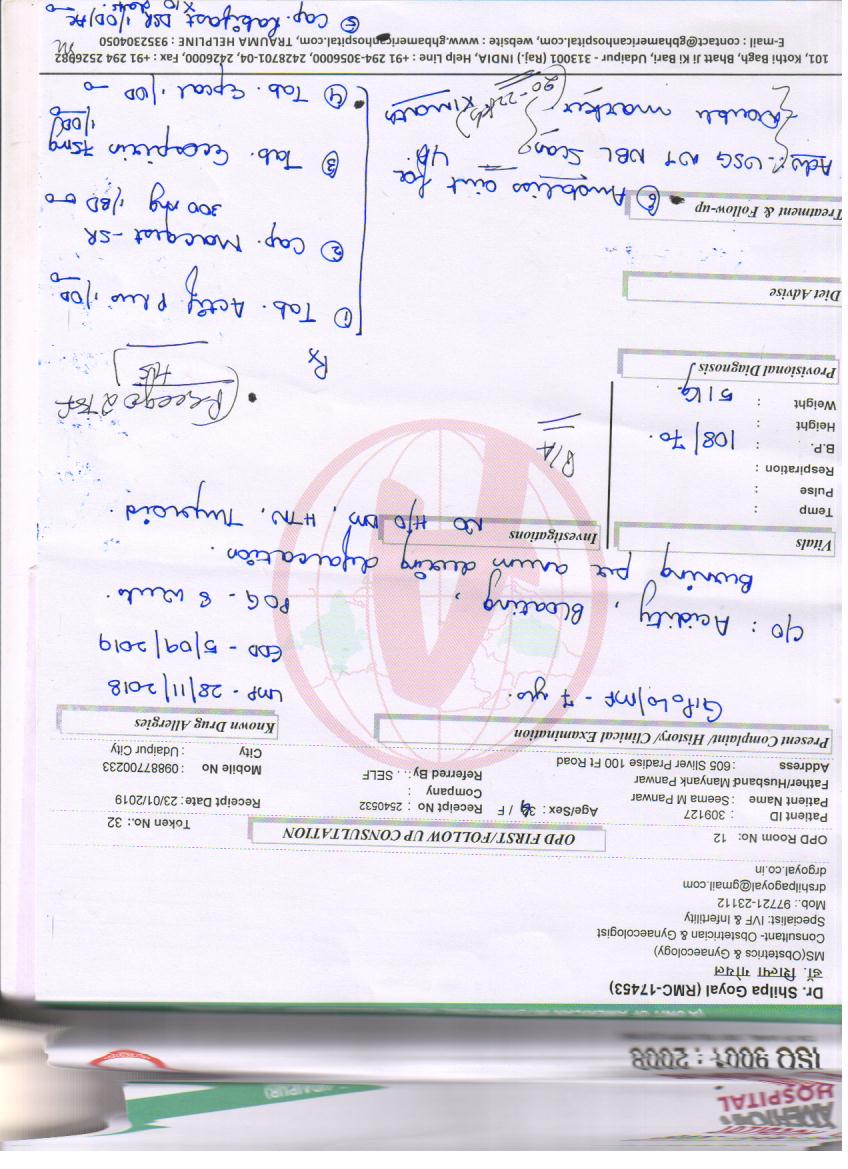 AMERICAN
HOSPITAL
ISO 9001 : 2008
Dr. Shilpa Goyal (RMC-17453)
डॉ. शिल्पा गोयल
MS(Obstetrics & Gynaecology)
Consultant- Obstetrician & Gynaecologist
Specialist: IVF & Infertility
Mob.: 97721-23112
drshilpagoyal@gmail.com
drgoyal.co.in
OPD Room No: 12
OPD FIRST/FOLLOW UP CONSULTATION
Token No.: 32
Patient ID : 309127
Age/Sex: / F
Receipt No : 2540532
Receipt Date: 23/01/2019
Patient Name : Seema M Panwar
Company :
Father/Husband Manyank Panwar
Referred By: . . SELF
Mobile No : 09887700233
Address : 605 Sliver Pradise 100 Ft Road
City : Udaipur City
Present Complaint/ History/ Clinical Examination
Known Drug Allergies
G1P0L0/MF - 7 yrs.
LMP - 28/11/2018
EDD - 5/09/2019
POG - 8 weeks.
C/O : Acidity, Bloating,
Burning per anum during defaecation.
Vitals
Investigations
NO H/O DM, HTN, Thyroid.
Temp :
Pulse :
Respiration :
B.P. : 108/70.
Height :
Weight : 51 Kg
P/A
Provisional Diagnosis
Rx
① Tab. Actify Plus 1/OD
Diet Advise
② Cap. Macqust-SR
300 mg 1/BD
Treatment & Follow-up
③ Tab. Ecospirin 75mg
1/OD
④ Tab. Epcal 1/OD
⑤ Cap. Rabifast DSR 1/OD/AC
X 10 days.
⑥ Anobliss oint for
L/A
Adv:. USG NT NBL Scan
Double marker
101, Kothi Bagh, Bhatt Ji Ki Bari, Udaipur - 313001 (Raj.) INDIA, Help Line : +91 294-3056000, 2428701-04, 2426000, Fax : +91 294 2526982
E-mail : contact@gbhamericanhospital.com, website : www.gbhamericanhospital.com, TRAUMA HELPLINE : 9352304050